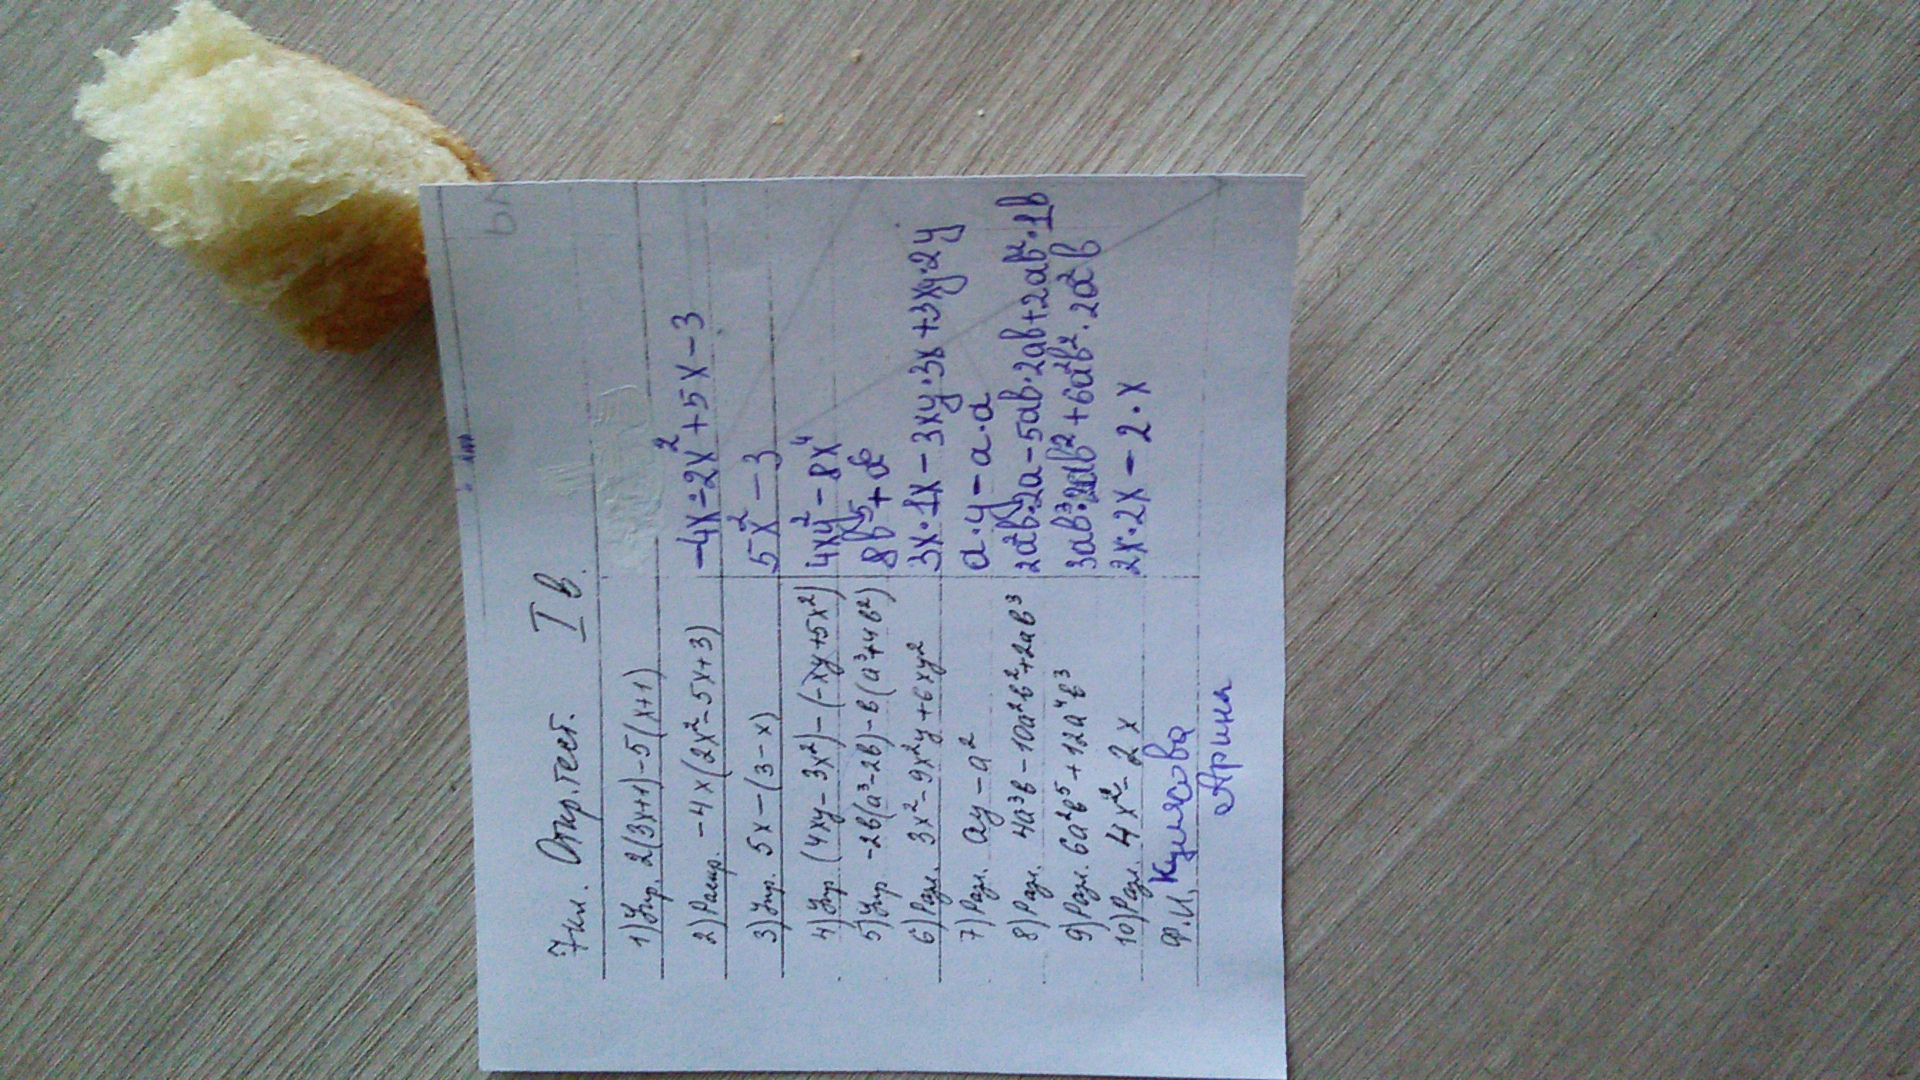 7кл. Откр.тест. I в.
1) Упр. 2(3x+1)-5(x+1)
2) Раскр. -4x(2x²-5x+3) -4x-2x²+5x-3
3) Упр. 5x-(3-x) 5x²-3
4) Упр. (4xy-3x²)-(-xy+5x²) 4xy²-8x⁴
5) Упр -2в(a³-2в)-в(a³+4в²) 8в⁵+a⁶
6) Разл. 3x²-9x²y+6xy² 3x·1x-3xy·3x+3xy·2y
7) Разл. ay-a² a·y-a·a
8) Разл. 4a³в-10a²в²+2aв³ 2a²в·2a-5aв·2aв+2aв²·1в
9) Разл. 6a²в⁵+12a⁴в³ 3aв³·2aв²+6a²в²·2a²в
10) Разл. 4x²-2x 2x·2x-2·x
Ф.И. Арина